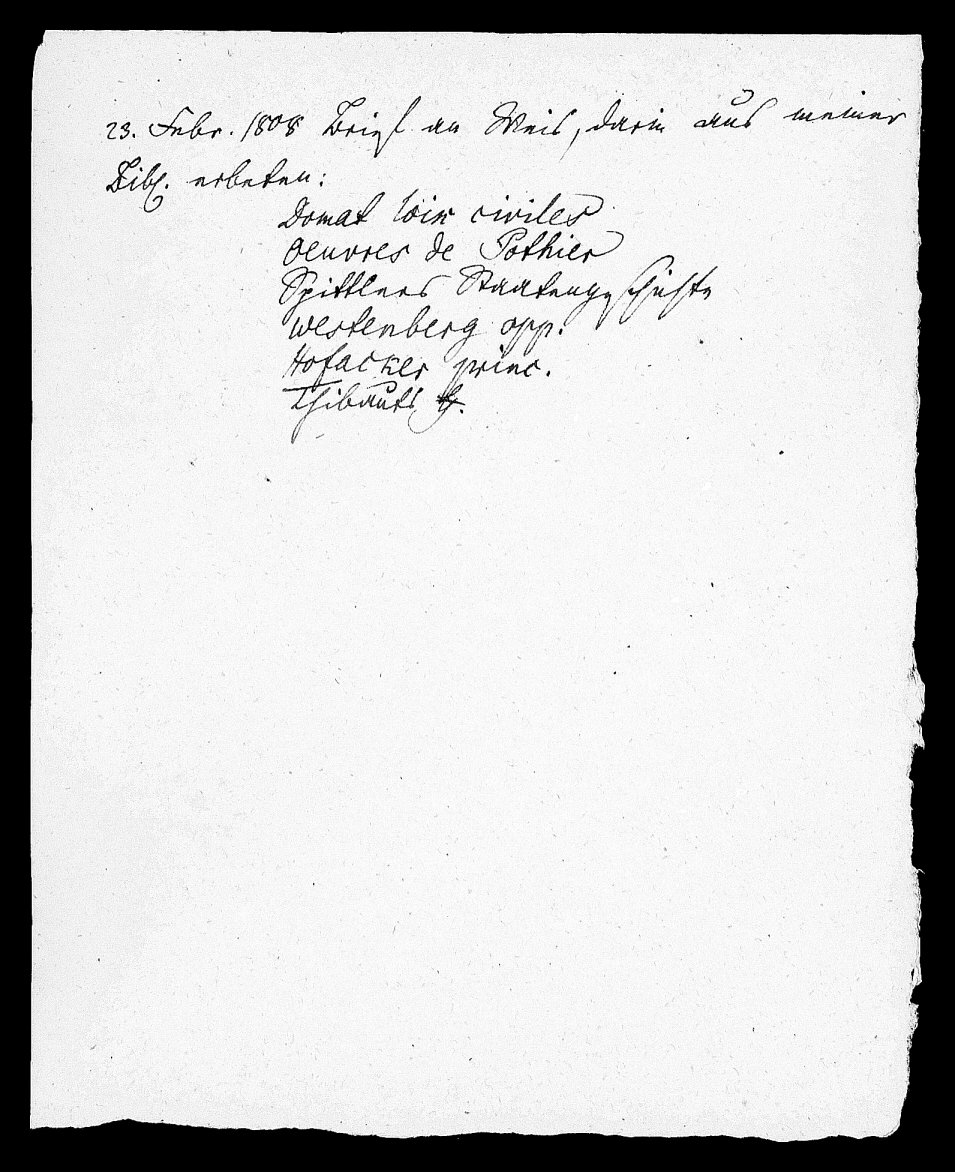 23. Febr. 1808 Brief an Weis, darin aus meiner
Bibl. erbeten:
Domat loix civiles
Oeuvres de Pothier
Spittlers Staatengeschichte
Westenberg opp.
Hofacker princ.
Thibauts